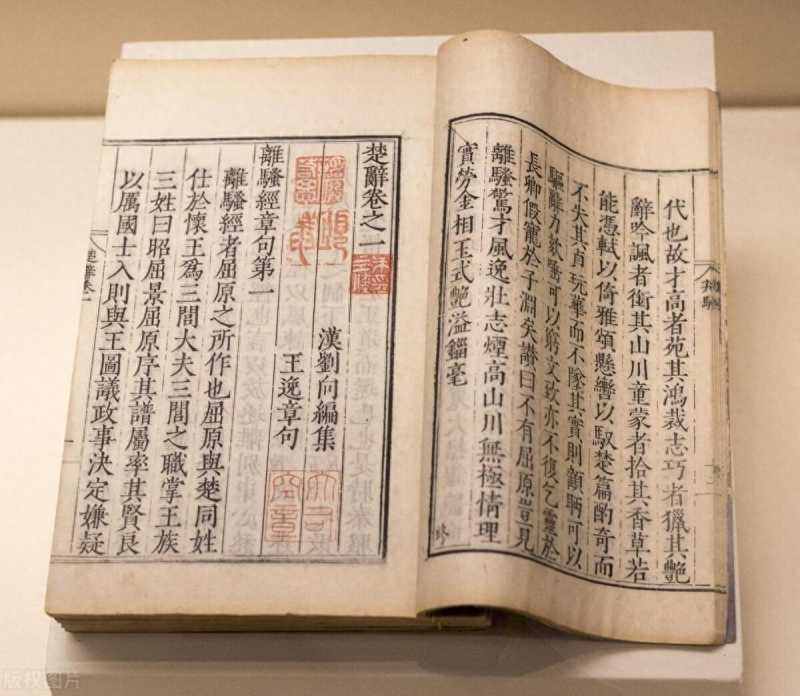 代也故才高者苑其鴻裁志巧者獵其艷
辭吟諷者銜其山川童蒙者拾其香草若
能憑軾以倚雅頌懸轡以馭楚篇酌奇而
不失其貞玩華而不墜其實則顧眄可以
驅辭力欬唾可以窮文致亦不復乞靈於
長卿假寵於子淵矣讚曰不有屈原豈見
離騷驚才風逸壯志煙高山川無極情理
實勞金相玉式艷溢錙毫
楚辭卷之一
漢劉向編集
王逸章句
離騷經章句第一
離騷經者屈原之所作也屈原與楚同姓
仕於懷王為三閭大夫三閭之職掌王族
三姓曰昭屈景屈原序其譜屬率其賢良
以厲國士入則與王圖議政事決定嫌疑
楚辭卷一
版权图片